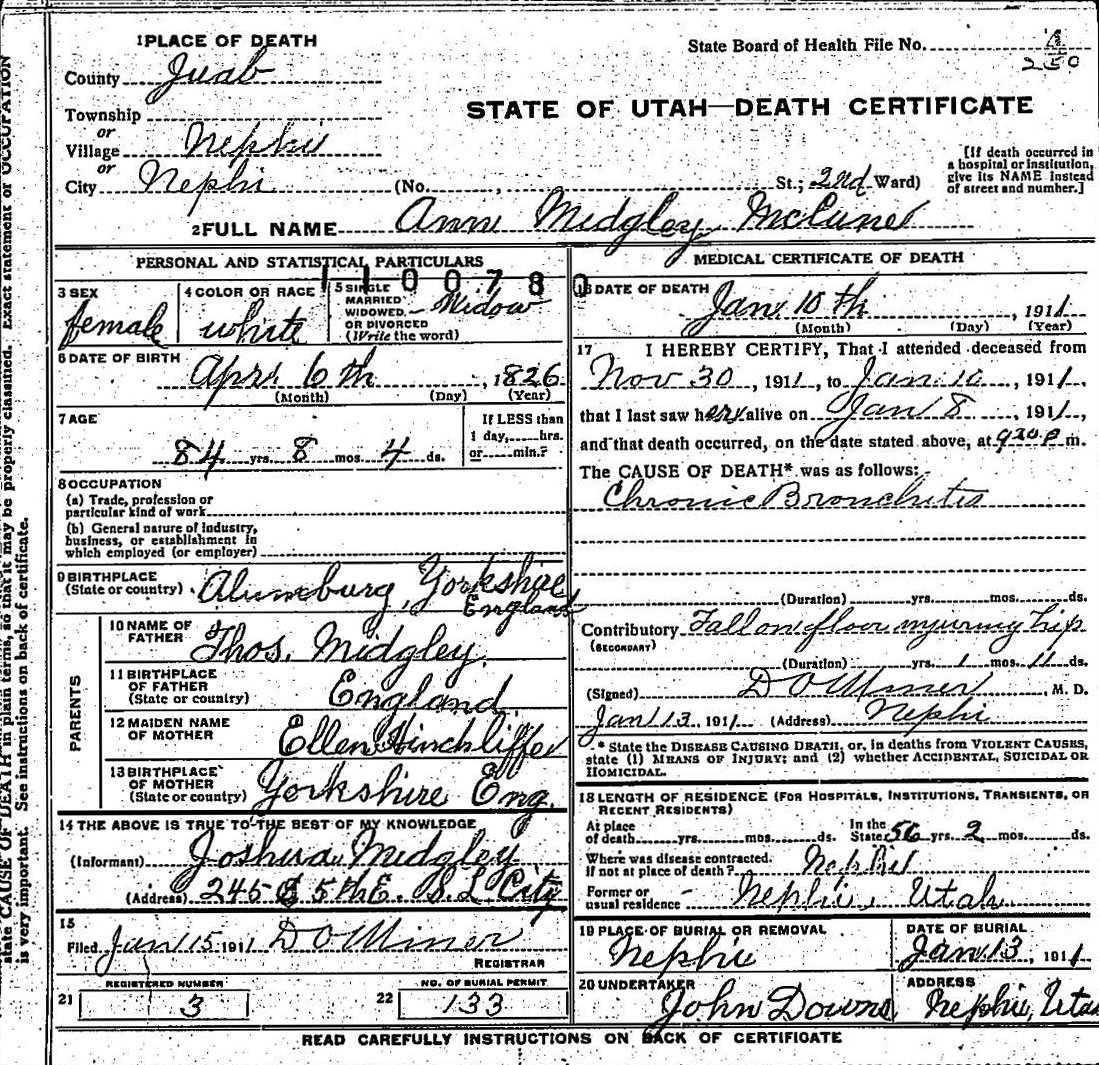 state CAUSE OF DEATH in plain terms, so that it may be properly classified. Exact statement of OCCUPATION
is very important. See instructions on back of certificate.
1 PLACE OF DEATH
County Juab
Township
or
Village Nephi
or
City Nephi (No. , St.; 2nd Ward)
State Board of Health File No. 4
250
STATE OF UTAH—DEATH CERTIFICATE
[If death occurred in
a hospital or institution,
give its NAME instead
of street and number.]
2 FULL NAME Ann Midgley McCune
PERSONAL AND STATISTICAL PARTICULARS
1100780
3 SEX
female
4 COLOR OR RACE
white
5 SINGLE
MARRIED
WIDOWED
OR DIVORCED
(Write the word)
Widow
6 DATE OF BIRTH
Apr. 6th, 1826
(Month) (Day) (Year)
7 AGE
84 yrs. 8 mos. 4 ds.
If LESS than
1 day, hrs.
or min.?
8 OCCUPATION
(a) Trade, profession or
particular kind of work
(b) General nature of industry,
business, or establishment in
which employed (or employer)
9 BIRTHPLACE
(State or country) Yorkshire
England
PARENTS
10 NAME OF
FATHER Thos. Midgley
11 BIRTHPLACE
OF FATHER
(State or country) England
12 MAIDEN NAME
OF MOTHER Ellen Hinchliffe
13 BIRTHPLACE
OF MOTHER
(State or country) Yorkshire Eng.
14 THE ABOVE IS TRUE TO THE BEST OF MY KNOWLEDGE
(Informant) Joshua Midgley
(Address) 245 S 5th E. S L City
15
Filed Jan 15 1911 D O Miner
REGISTRAR
21 REGISTERED NUMBER
3
22 NO. OF BURIAL PERMIT
133
MEDICAL CERTIFICATE OF DEATH
16 DATE OF DEATH
Jan. 10th, 1911
(Month) (Day) (Year)
17 I HEREBY CERTIFY, That I attended deceased from
Nov 30, 1911, to Jan 10, 1911,
that I last saw her alive on Jan 8, 1911,
and that death occurred, on the date stated above, at 920 P m.
The CAUSE OF DEATH* was as follows:
Chronic Bronchitis
(Duration) yrs. mos. ds.
Contributory Fall on floor injuring hip
(SECONDARY)
(Duration) yrs. 1 mos. 11 ds.
(Signed) D O Miner, M. D.
Jan 13 1911 (Address) Nephi
* State the DISEASE CAUSING DEATH, or, in deaths from VIOLENT CAUSES,
state (1) MEANS OF INJURY; and (2) whether ACCIDENTAL, SUICIDAL OR
HOMICIDAL.
18 LENGTH OF RESIDENCE (FOR HOSPITALS, INSTITUTIONS, TRANSIENTS, OR
RECENT RESIDENTS)
At place
of death yrs. mos. ds.
In the
State 56 yrs. 2 mos. ds.
Where was disease contracted.
If not at place of death? Nephi
Former or
usual residence Nephi, Utah
19 PLACE OF BURIAL OR REMOVAL
Nephi
DATE OF BURIAL
Jan. 13, 1911
20 UNDERTAKER
John Downs
ADDRESS
Nephi, Utah
READ CAREFULLY INSTRUCTIONS ON BACK OF CERTIFICATE